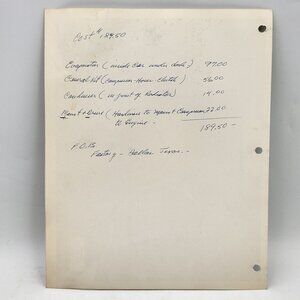 Cost $ 189.50
Evaporator (inside car under dash) 97.00
Control kit (Compressor Hoses Clutch) 56.00
Condenser (in front of Radiator) 14.00
Mount & Drive (Hardware to Mount Compressor 22.00
to Engine -
189.50 -
F.O.B.
Factory - Dallas Texas. -